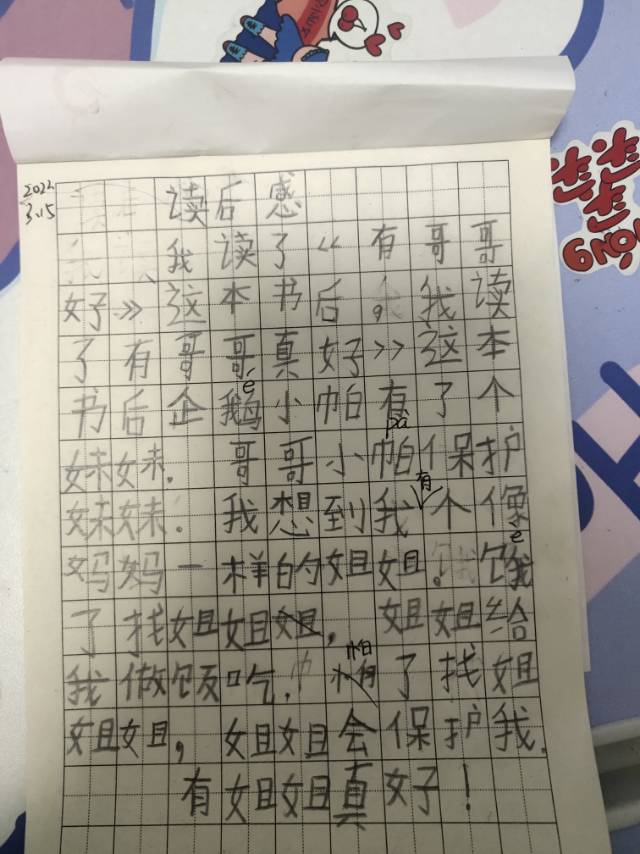 2022
3.15
读后感
我读了《有哥哥
好》这本书后，我读
了有哥哥真好》这本
书后企鹅小帕有了个
é
妹妹.哥哥小帕保护
pà
妹妹.我想到我有个像
妈妈一样的姐姐。饿
è
了找姐姐姐，姐姐给
我做饭吃.怕了找姐
帕
姐姐，姐姐会保护我.
有姐姐真好！